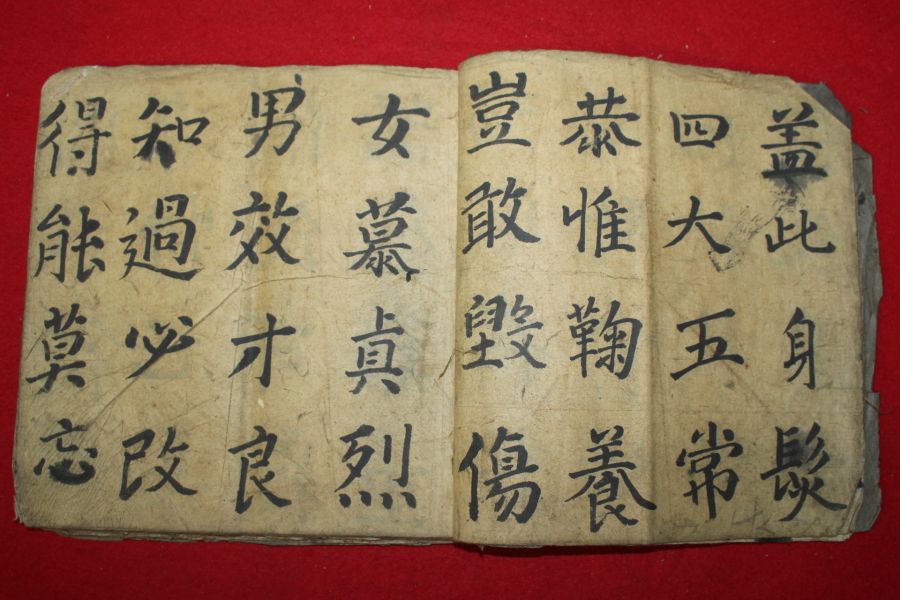 盖此身髮
四大五常
恭惟鞠養
豈敢毀傷
女慕貞烈
男效才良
知過必改
得能莫忘